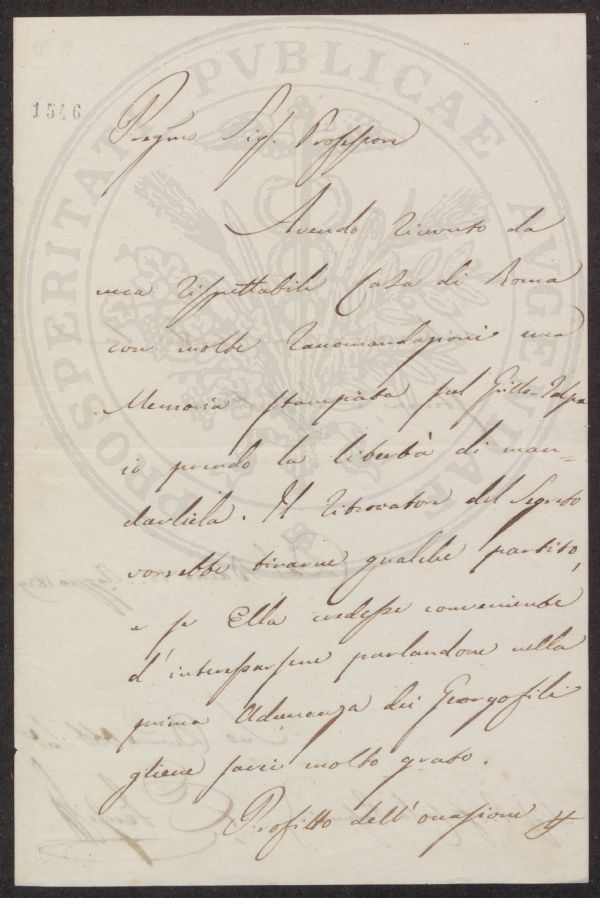 PROSPERITATI PVBLICAE AVGENDAE
1546
Pregmo Sigr. Professore
Avendo ricevuto da
una rispettabile Casa di Roma
con molte raccomandazioni una
Memoria stampata sul Grillo-Talpa
io prendo la libertà di man-
darliela. Il ritrovatore del Segreto
vorrebbe tirarne qualche partito,
e se Ella credesse conveniente
d'interessarsene parlandone nella
prima Adunanza dei Georgofili
gliene sarei molto grato.
Profitto dell'occasione